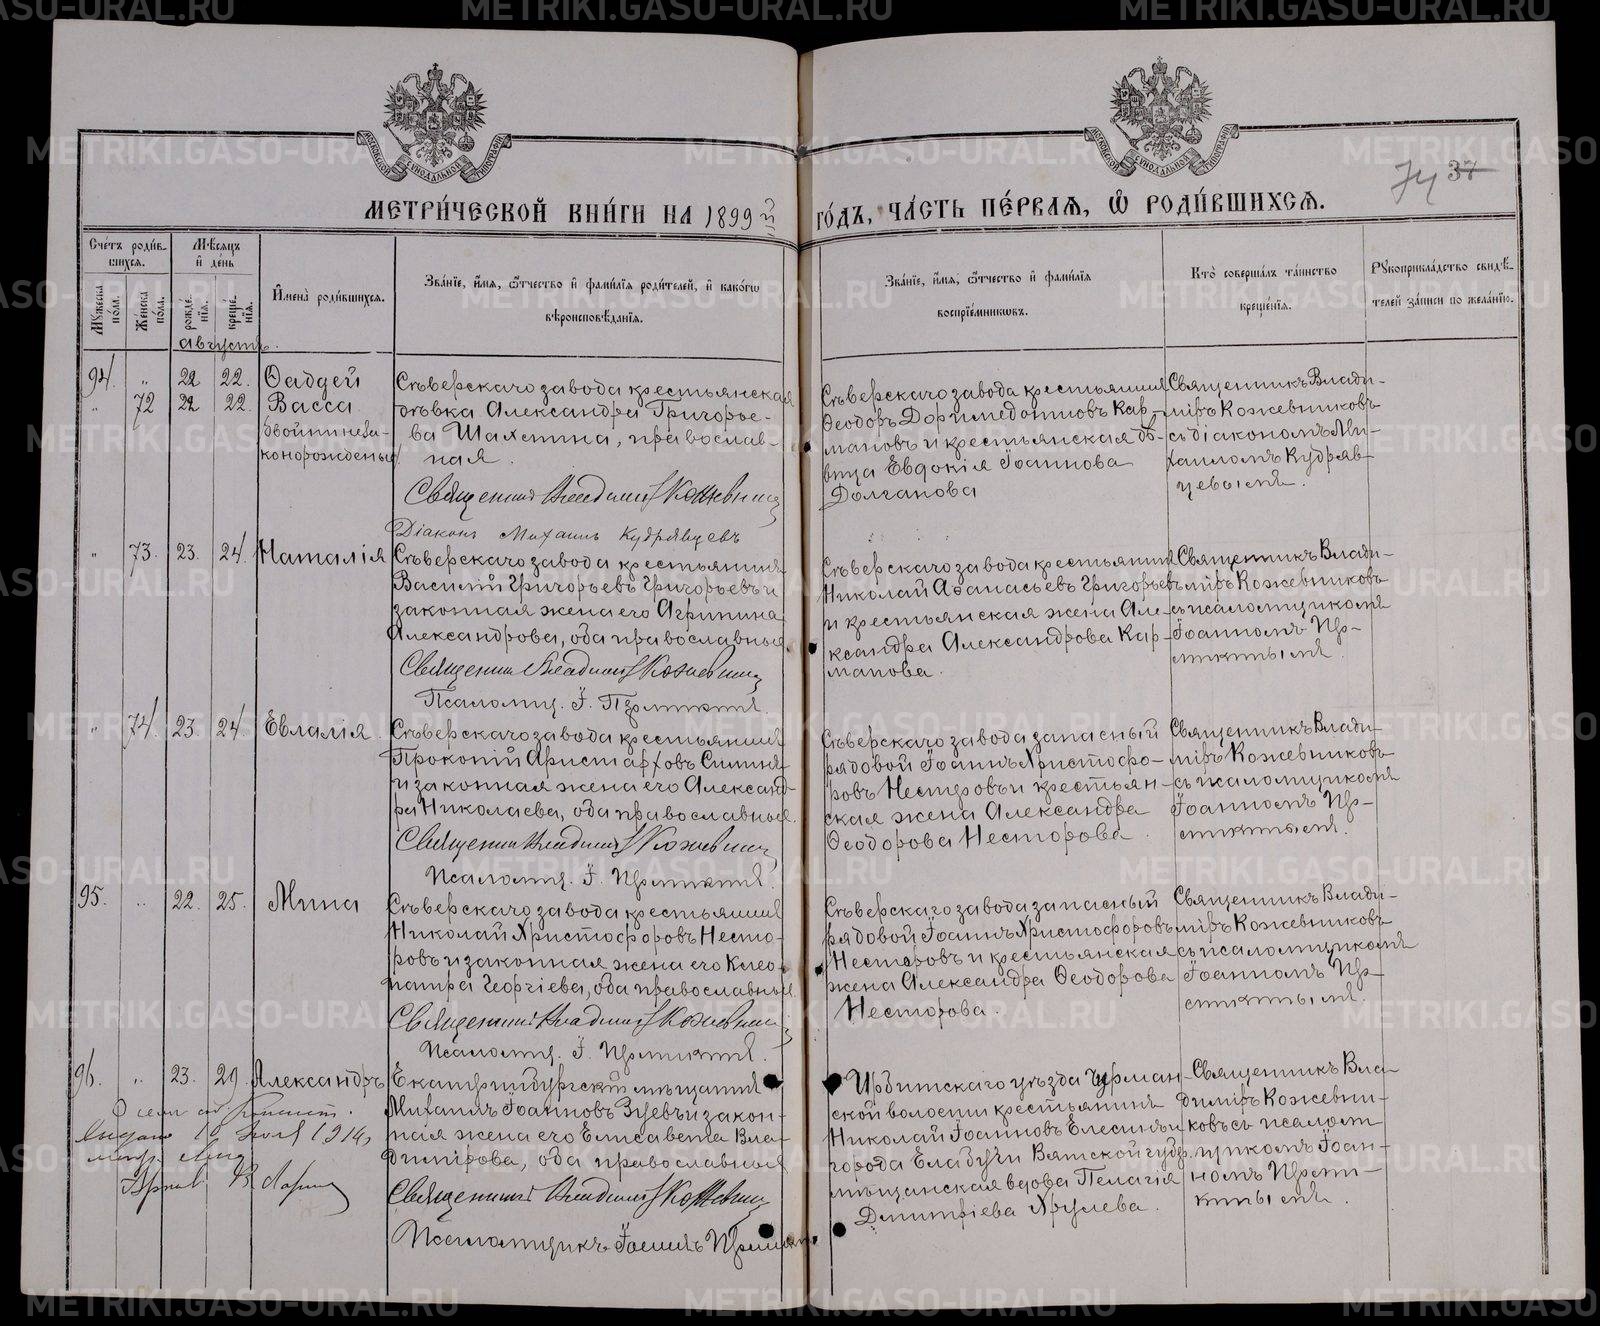 МЕТРИ́ЧЕСКОЙ КНИ́ГИ НА 1899й
ГО́ДЪ, ЧА́СТЬ ПЕ́РВАЯ, Ѡ РОДИ́ВШИХСЯ.
74 37
Сче́тъ роди́в-
шихся.
Му́жеска по́ла.
Же́нска по́ла.
Мѣ́сяцъ и де́нь
рожде́-нія.
креще́-нія.
Имена̀ роди́вшихся.
Зва́нїе, и́мя, ѻ́тчество и фами́лїя роди́телей, и како́гѡ
вѣроисповѣ́данїя.
Зва́нїе, и́мя, ѻ́тчество и фами́лїя
воспрїе́мниковъ.
Кто̀ соверша́лъ та́инство
креще́нїя.
Рꙋкоприкла́дство свидѣ́-
телей за́писи по жела́нїю.
Августъ.
94. „ 22 22. Ѳаддей
„ 72 22 22. Васса
двойни неза-
конорожденые
Сѣверскаго завода крестьянская
дѣвка Александра Григорье-
ва Шахмина, православ-
ная.
Священникъ Владимiръ Кожевников
Дiаконъ Михаилъ Кудрявцевъ
Сѣверскаго завода крестьянинъ
Ѳеодоръ Доримедонтовъ Кар-
мановъ и крестьянская дѣ-
вица Евдокія Іоаннова
Долганова
Священникъ Влади-
міръ Кожевниковъ
съ діакономъ Ми-
хаиломъ Кудряв-
цевымъ.
„ 73. 23. 24. Наталія
Сѣверскаго завода крестьянинъ
Василій Григорьевъ Григорьевъ и
законная жена его Агрипина
Александрова, оба православные.
Священникъ Владимiръ Кожевников
Псаломщ. І.
Сѣверскаго завода крестьянинъ
Николай Аѳанасьевъ Григорьевъ
и крестьянская жена Але-
ксандра Александрова Кар-
манова.
Священникъ Влади-
міръ Кожевниковъ
съ псаломщикомъ
Іоанномъ
„ 74. 23. 24. Евлалія.
Сѣверскаго завода крестьянинъ
Прокопій Аристарховъ
и законная жена его Александ-
ра Николаева, оба православные.
Священникъ Владимiръ Кожевников
Псаломщ. І.
Сѣверскаго завода запасный
рядовой Іоаннъ Христофо-
ровъ Нестеровъ и крестьян-
ская жена Александра
Ѳеодорова Несторова.
Священникъ Влади-
міръ Кожевниковъ
съ псаломщикомъ
Іоанномъ
95. „ 22. 25. Мина
Сѣверскаго завода крестьянинъ
Николай Христофоровъ Несто-
ровъ и законная жена его Клео-
патра Георгіева, оба православные.
Священникъ Владимiръ Кожевников
Псаломщ. І.
Сѣверскаго завода запасный
рядовой Іоаннъ Христофоровъ
Нестеровъ и крестьянская
жена Александра Ѳеодорова
Несторова.
Священникъ Влади-
міръ Кожевниковъ
съ псаломщикомъ
Іоанномъ
96. „ 23. 29. Александръ
Екатеринбургскій мѣщанинъ
Михаилъ Іоанновъ Зуевъ и закон-
ная жена его Елисавета Вла-
димірова, оба православные
Священникъ Владимiръ Кожевников
Псаломщикъ Іоаннъ
Ирбитскаго уѣзда
ской волости крестьянинъ
Николай Іоанновъ
города Елабуги Вятской губ.
мѣщанская вдова Пелагія
Димитріева Хрулева.
Священникъ Вла-
диміръ Кожевни-
ковъ съ псалом-
щикомъ Іоан-
номъ
1914
METRIKI.GASO-URAL.RU